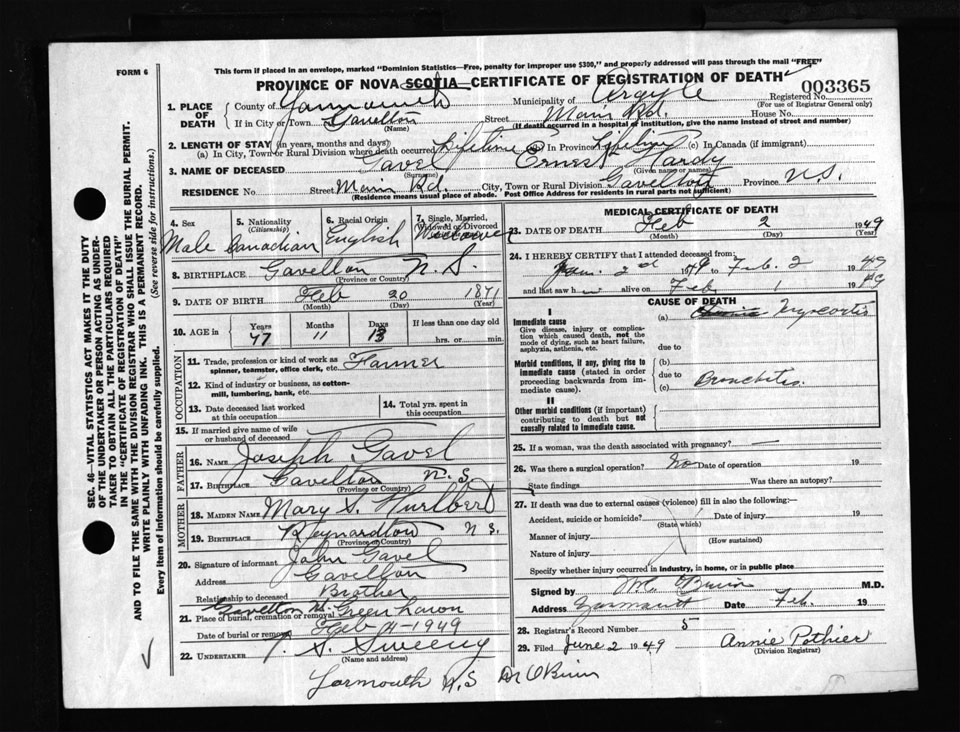 FORM 6
This form if placed in an envelope, marked "Dominion Statistics—Free, penalty for improper use $300," and properly addressed will pass through the mail "FREE"
PROVINCE OF NOVA SCOTIA—CERTIFICATE OF REGISTRATION OF DEATH
003365
Registered No.
(For use of Registrar General only)
1. PLACE OF DEATH
County of Yarmouth Municipality of Argyle
If in City or Town Gavelton Street Main Rd. House No.
(Name) (If death occurred in a hospital or institution, give the name instead of street and number)
2. LENGTH OF STAY (in years, months and days)
(a) In City, Town or Rural Division where death occurred Lifetime (b) In Province Lifetime (c) In Canada (if immigrant)
3. NAME OF DECEASED Gavel Ernest Hardy
(Surname) (Given name or names)
RESIDENCE No. Street Main Rd. City, Town or Rural Division Gavelton Province N.S.
(Residence means usual place of abode. Post Office Address for residents in rural parts not sufficient)
4. Sex Male
5. Nationality (Citizenship) Canadian
6. Racial Origin English
7. Single, Married, Widowed or Divorced Widower
8. BIRTHPLACE Gavelton N.S.
(Province or Country)
9. DATE OF BIRTH Feb 20 1871
(Month) (Day) (Year)
10. AGE in Years Months Days If less than one day old
77 11 13 hrs. or min.
OCCUPATION
11. Trade, profession or kind of work as spinner, teamster, office clerk, etc. Farmer
12. Kind of industry or business, as cotton-mill, lumbering, bank, etc.
13. Date deceased last worked at this occupation
14. Total yrs. spent in this occupation
15. If married give name of wife or husband of deceased
FATHER
16. Name Joseph Gavel
17. Birthplace Gavelton N.S.
(Province or Country)
MOTHER
18. Maiden Name Mary S. Hurlberd
19. Birthplace Reynardton N.S.
(Province or Country)
20. Signature of informant John Gavel
Address Gavelton
Relationship to deceased Brother
21. Place of burial, cremation or removal Gavelton
Date of burial or removal Feb 4-1949
22. UNDERTAKER S. Sweeny
(Name and address)
Yarmouth N.S Dr O'Brien
MEDICAL CERTIFICATE OF DEATH
23. DATE OF DEATH Feb 2 1949
(Month) (Day) (Year)
24. I HEREBY CERTIFY that I attended deceased from:
Jan. 2nd 1949 to Feb. 2 1949
and last saw h alive on Feb 1 1949
CAUSE OF DEATH
I
Immediate cause
Give disease, injury or complication which caused death, not the mode of dying, such as heart failure, asphyxia, asthenia, etc.
(a) Chronic
due to
Morbid conditions, if any, giving rise to immediate cause (stated in order proceeding backwards from immediate cause).
(b)
due to
(c) Bronchitis
II
Other morbid conditions (if important) contributing to death but not causally related to immediate cause.
25. If a woman, was the death associated with pregnancy? —
26. Was there a surgical operation? No Date of operation 19
State findings Was there an autopsy?
27. If death was due to external causes (violence) fill in also the following:-
Accident, suicide or homicide? Date of injury 19
(State which)
Manner of injury
(How sustained)
Nature of injury
Specify whether injury occurred in industry, in home, or in public place
Signed by O'Brien M.D.
Address Yarmouth Date Feb. 19
28. Registrar's Record Number 5
29. Filed June 2 1949 Annie Pothier
(Division Registrar)
SEC. 46—VITAL STATISTICS ACT MAKES IT THE DUTY
OF THE UNDERTAKER OR PERSON ACTING AS UNDER-
TAKER TO OBTAIN ALL THE PARTICULARS REQUIRED
IN THE "CERTIFICATE OF REGISTRATION OF DEATH"
AND TO FILE THE SAME WITH THE DIVISION REGISTRAR WHO SHALL ISSUE THE BURIAL PERMIT.
WRITE PLAINLY WITH UNFADING INK. THIS IS A PERMANENT RECORD.
Every item of information should be carefully supplied. (See reverse side for instructions.)